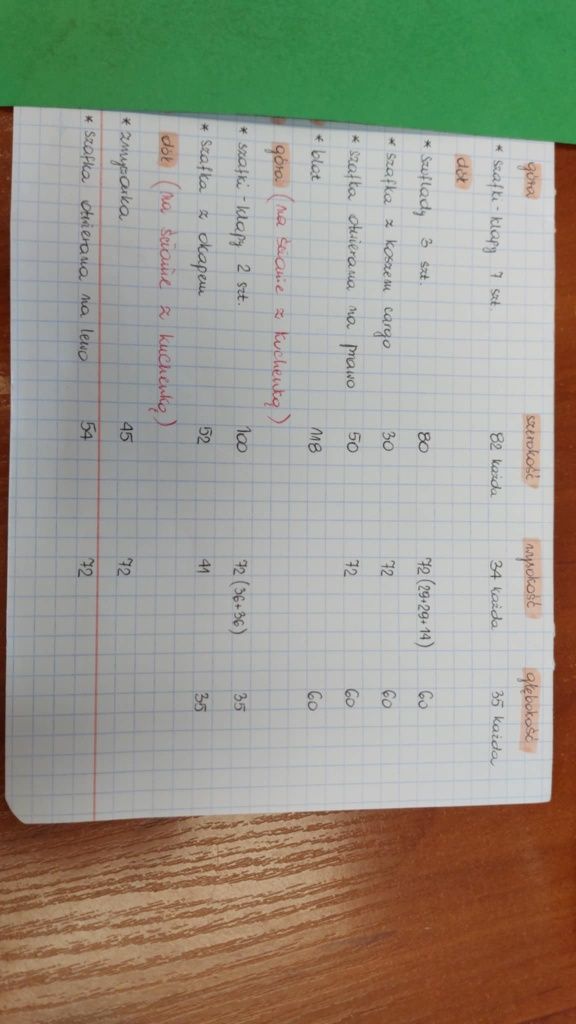 góra szerokość wysokość głębokość
* szafki-klapy 7 szt. 82 każda 34 każda 35 każda
dół
* szuflady 3 szt. 80 72 (29+29+14) 60
* szafka z koszem cargo 30 72 60
* szafka otwierana na prawo 50 72 60
* blat 118 60
góra (na ścianie z kuchenką)
* szafki-klapy 2 szt. 100 72 (36+36) 35
* szafka z okapem 52 41 35
dół (na ścianie z kuchenką)
* zmywarka 45 72
* szafka otwierana na lewo 54 72